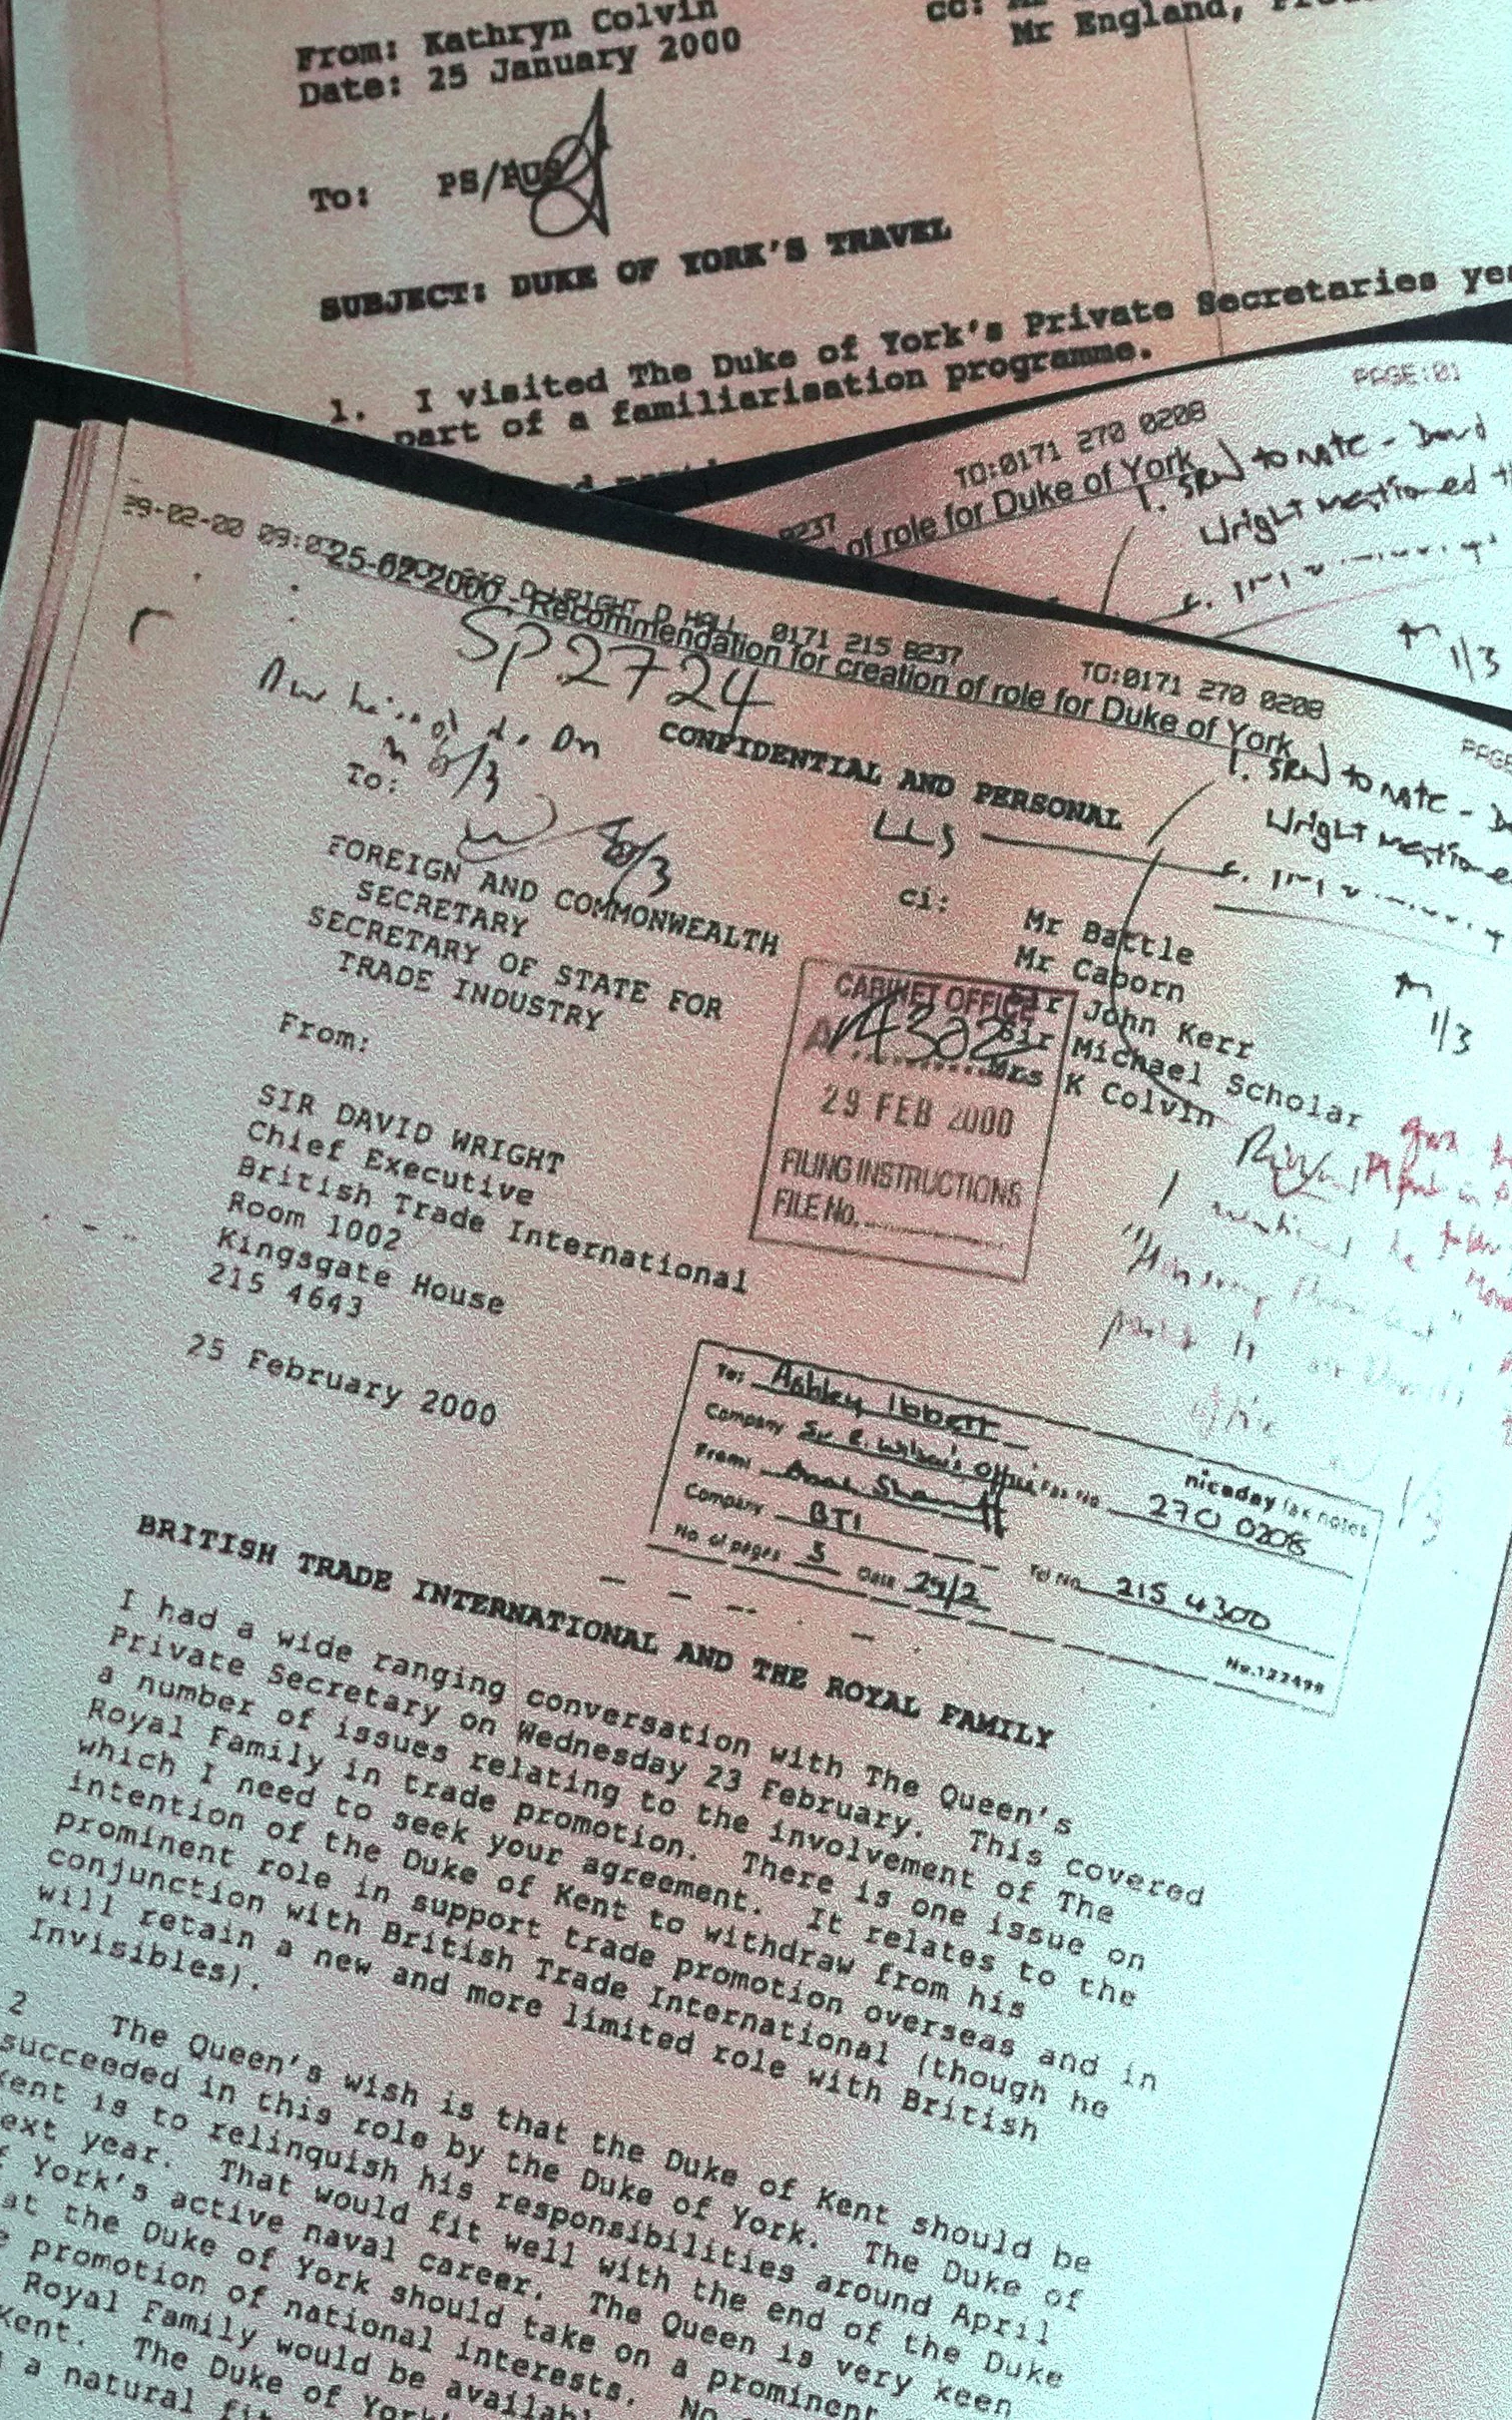 From: Kathryn Colvin
Date: 25 January 2000
cc:
Mr England,
To: PS/PUS
SUBJECT: DUKE OF YORK'S TRAVEL
1. I visited The Duke of York's Private Secretaries
part of a familiarisation programme.
PAGE:01
TO:0171 270 0208
0237
of role for Duke of York
1. SRW to note - David
Wright mentioned
1/3
29-02-00 09:0 0171 215 8237 TO:0171 270 0208
25-02-2000 - Recommendation for creation of role for Duke of York
SP.2724
1. SRW to note -
Wright
1/3
CONFIDENTIAL AND PERSONAL
To:
FOREIGN AND COMMONWEALTH
SECRETARY
SECRETARY OF STATE FOR
TRADE INDUSTRY
ci: Mr Battle
Mr Caborn
Sir John Kerr
Sir Michael Scholar
Mrs K Colvin
CABINET OFFICE
A 4302
29 FEB 2000
FILING INSTRUCTIONS
FILE No.
From:
SIR DAVID WRIGHT
Chief Executive
British Trade International
Room 1002
Kingsgate House
215 4643
25 February 2000
To: Ashley Ibbett
Company Sir R. Wilson's Office Fax No. 270 0208
From:
Company BTI Tel No. 215 4300
No. of pages 3 Date 29/2
niceday fax notes
No.122498
BRITISH TRADE INTERNATIONAL AND THE ROYAL FAMILY
I had a wide ranging conversation with The Queen's
Private Secretary on Wednesday 23 February. This covered
a number of issues relating to the involvement of The
Royal Family in trade promotion. There is one issue on
which I need to seek your agreement. It relates to the
intention of the Duke of Kent to withdraw from his
prominent role in support trade promotion overseas and in
conjunction with British Trade International (though he
will retain a new and more limited role with British
Invisibles).
2 The Queen's wish is that the Duke of Kent should be
succeeded in this role by the Duke of York. The Duke of
Kent is to relinquish his responsibilities around April
next year. That would fit well with the end of the Duke
of York's active naval career. The Queen is very keen
that the Duke of York should take on a prominent
promotion of national interests. No
Royal Family would be
Kent. The Duke of York's
a natural fit